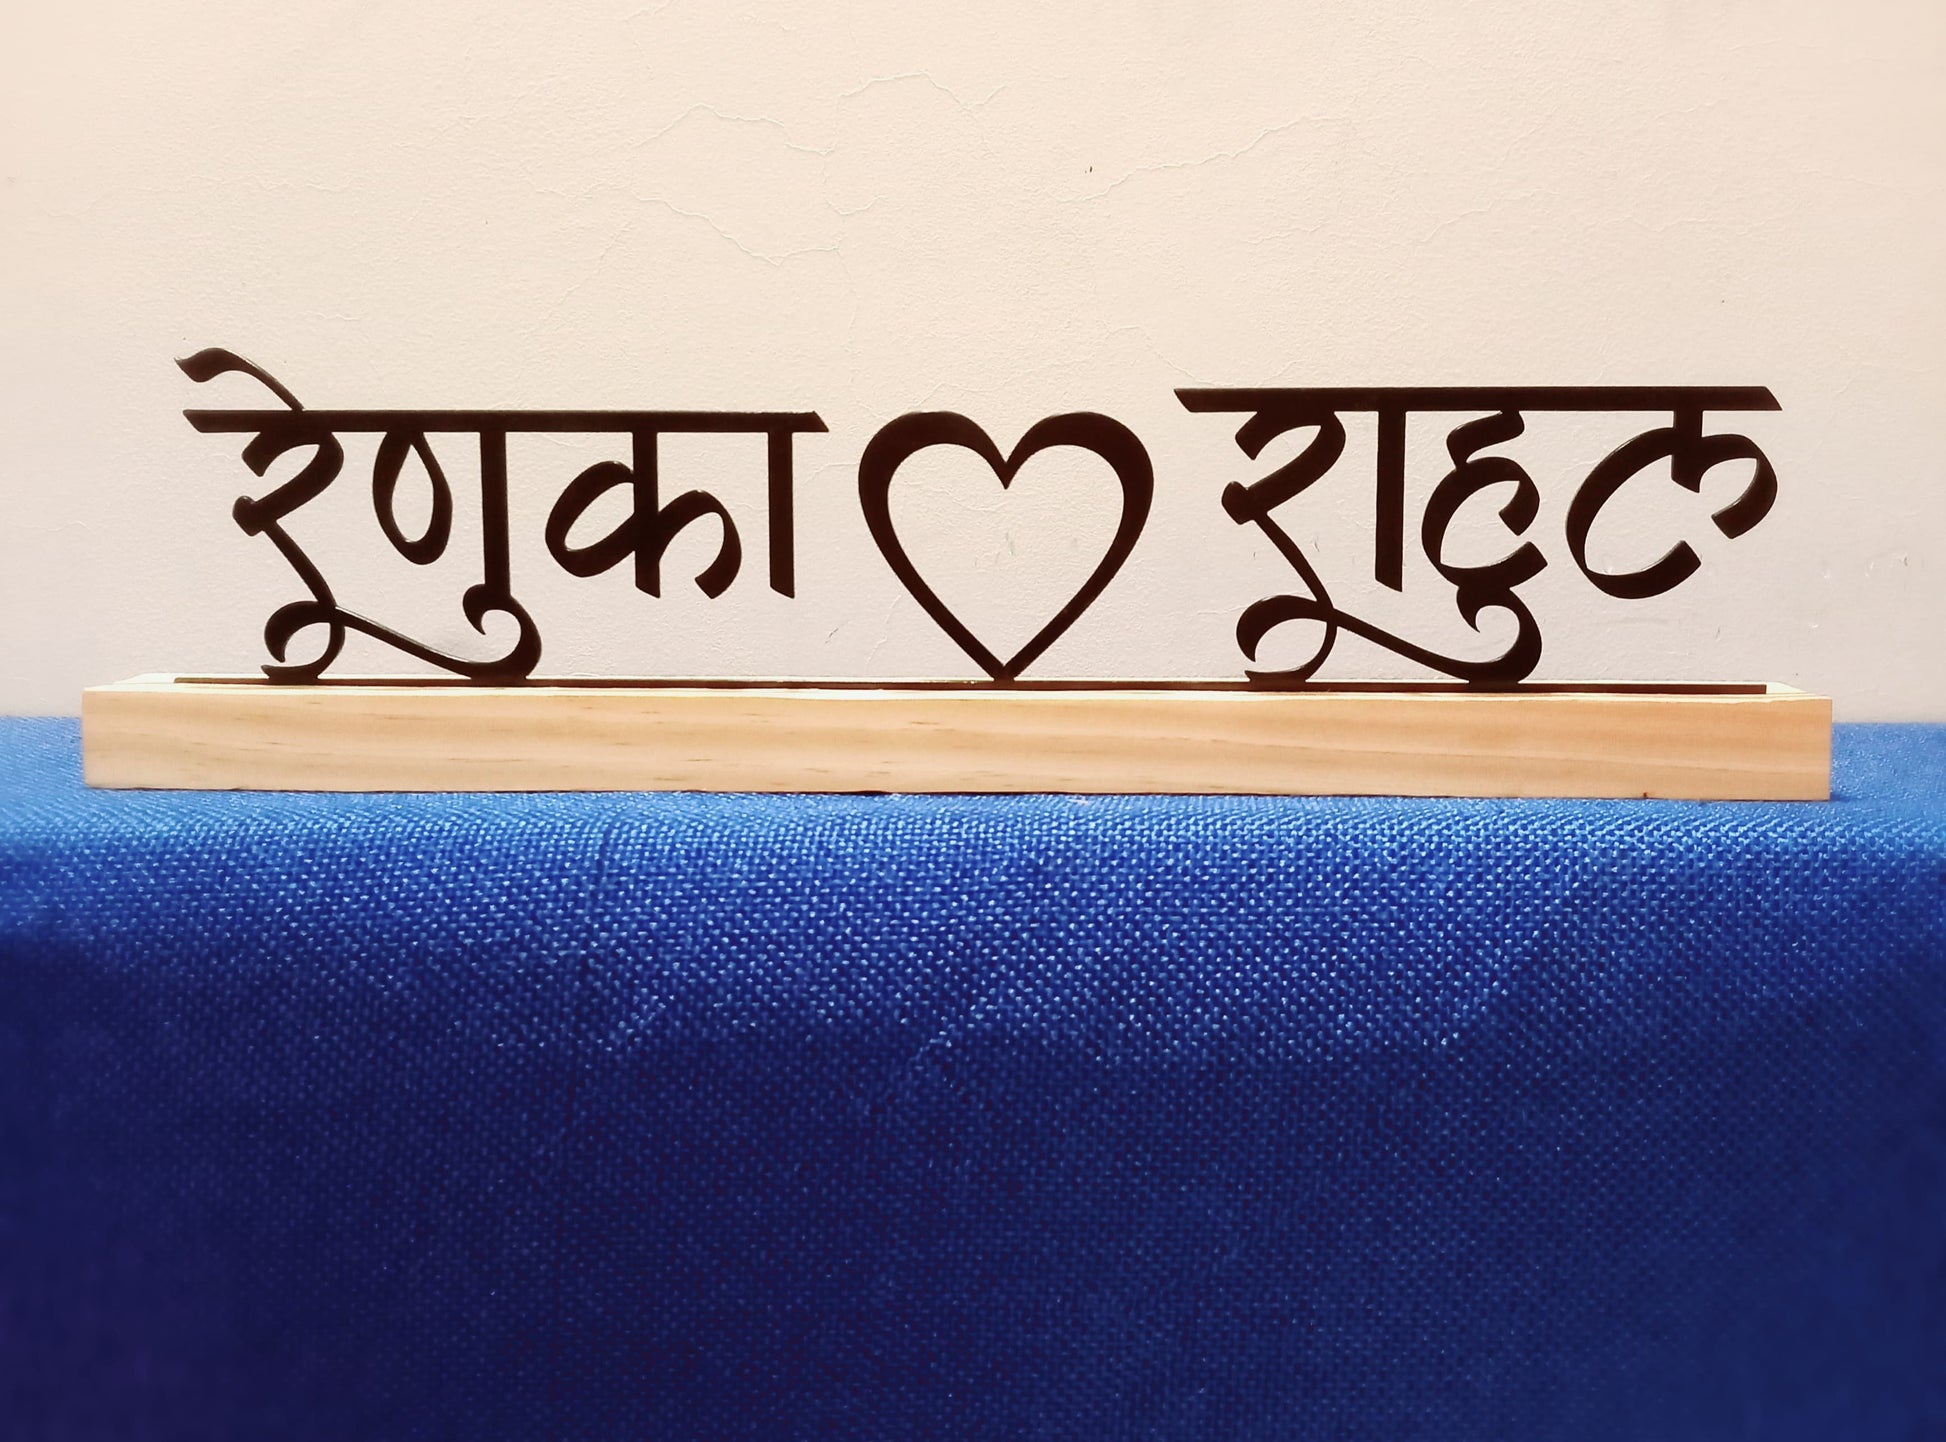 रेणुका राहुल